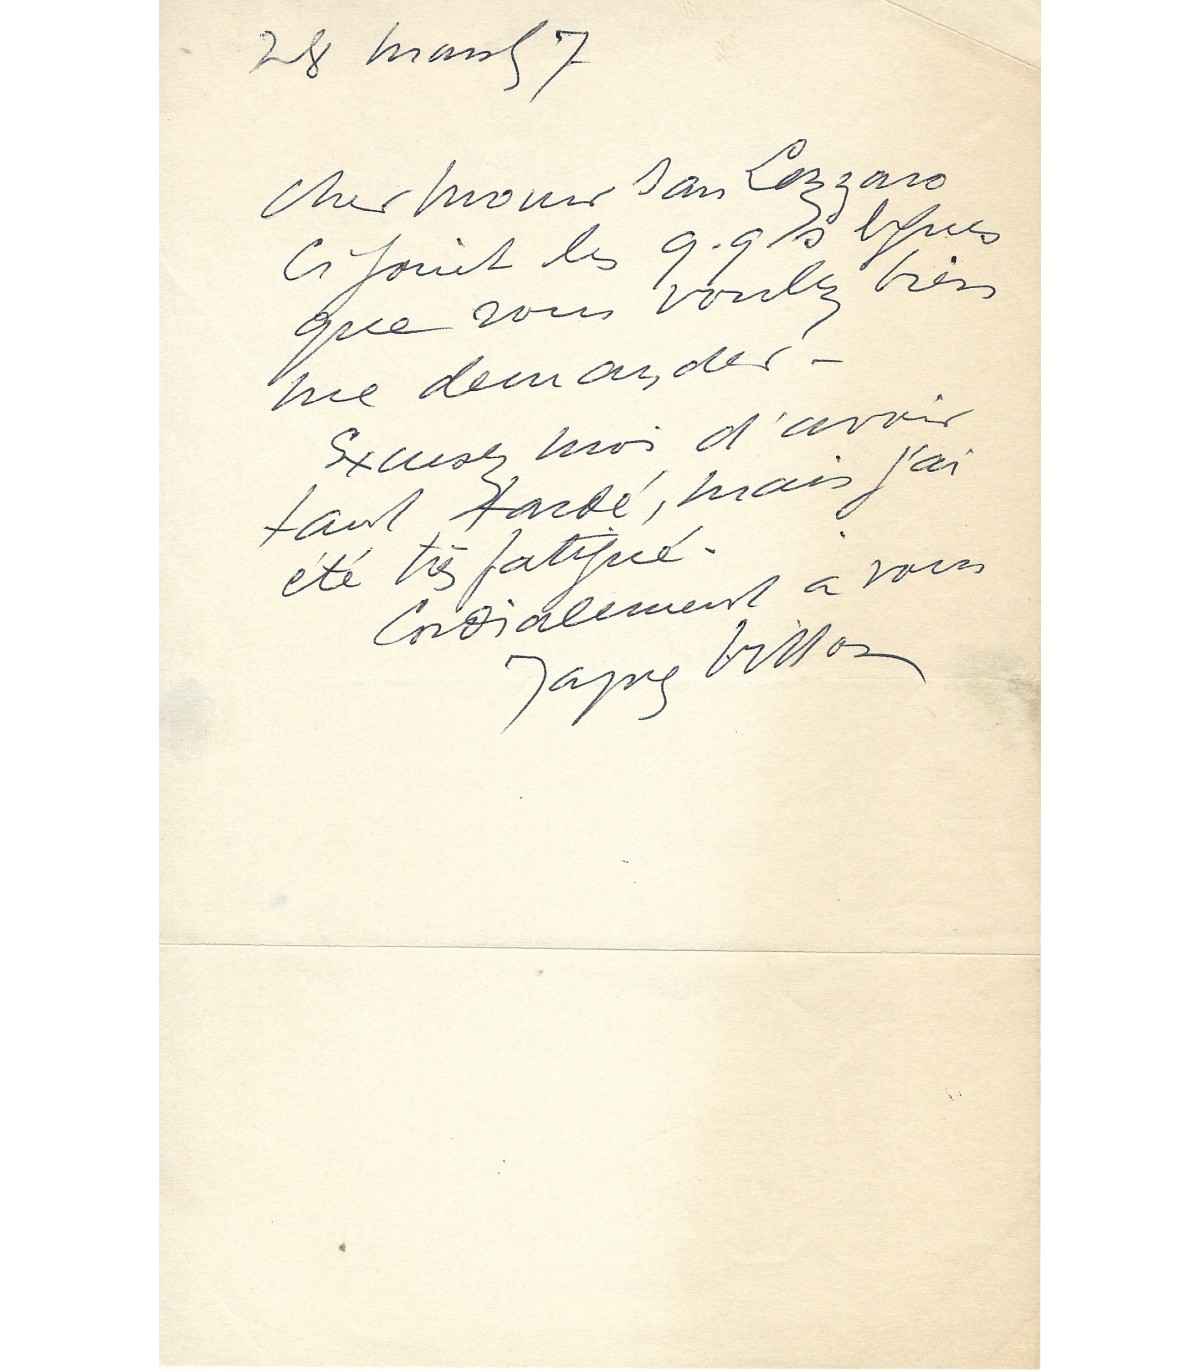 28 mars 57
Cher Monsieur San Lazzaro
Ci joint les q.q's lignes
que vous voulez bien
me demander -
Excusez moi d'avoir
tant tardé, mais j'ai
été très fatigué -
Cordialement à vous
Jacques Villon